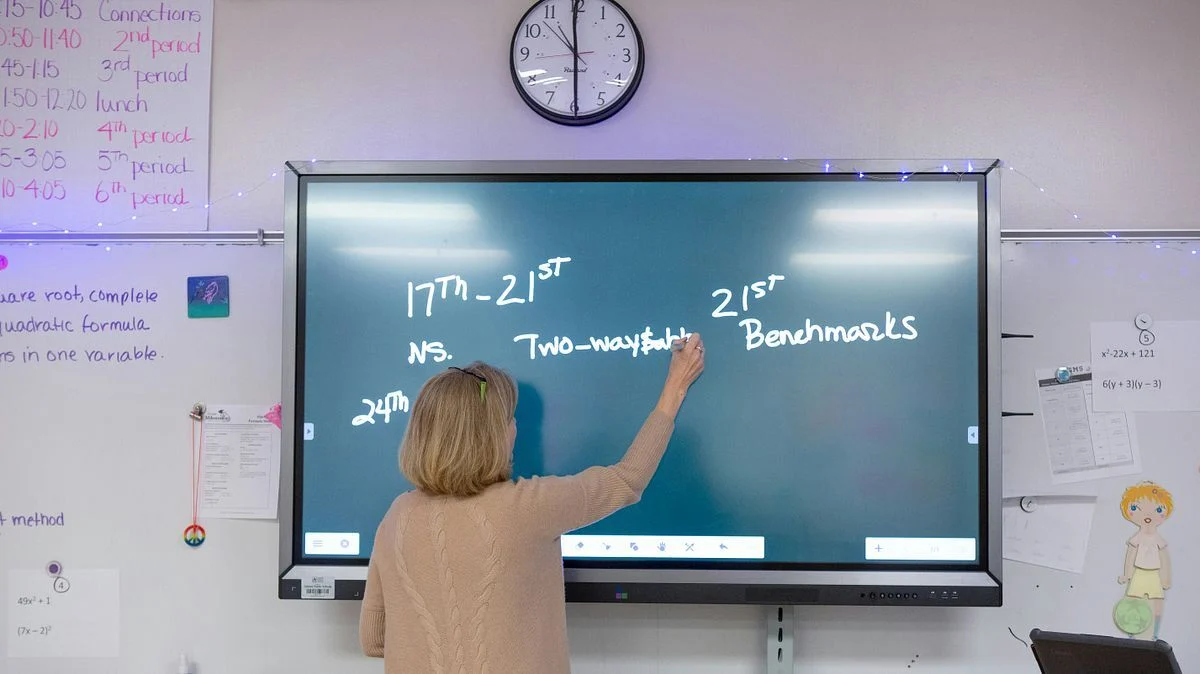 15-10:45 Connections
0:50-11:40 2nd period
45-1:15 3rd period
1:50-12:20 lunch
0-2:10 4Th period
5-3:05 5Th period
10-4:05 6th period
11 12 1
10 2
9 3
4
7 6 5
uare root, complete
quadratic formula
ns in one variable.
17Th - 21ST
NS. Two-way
21ST
Benchmarks
24Th
t method
4
49x² + 1
(7x – 2)²
5
x²-22x + 121
6(y + 3)(y – 3)